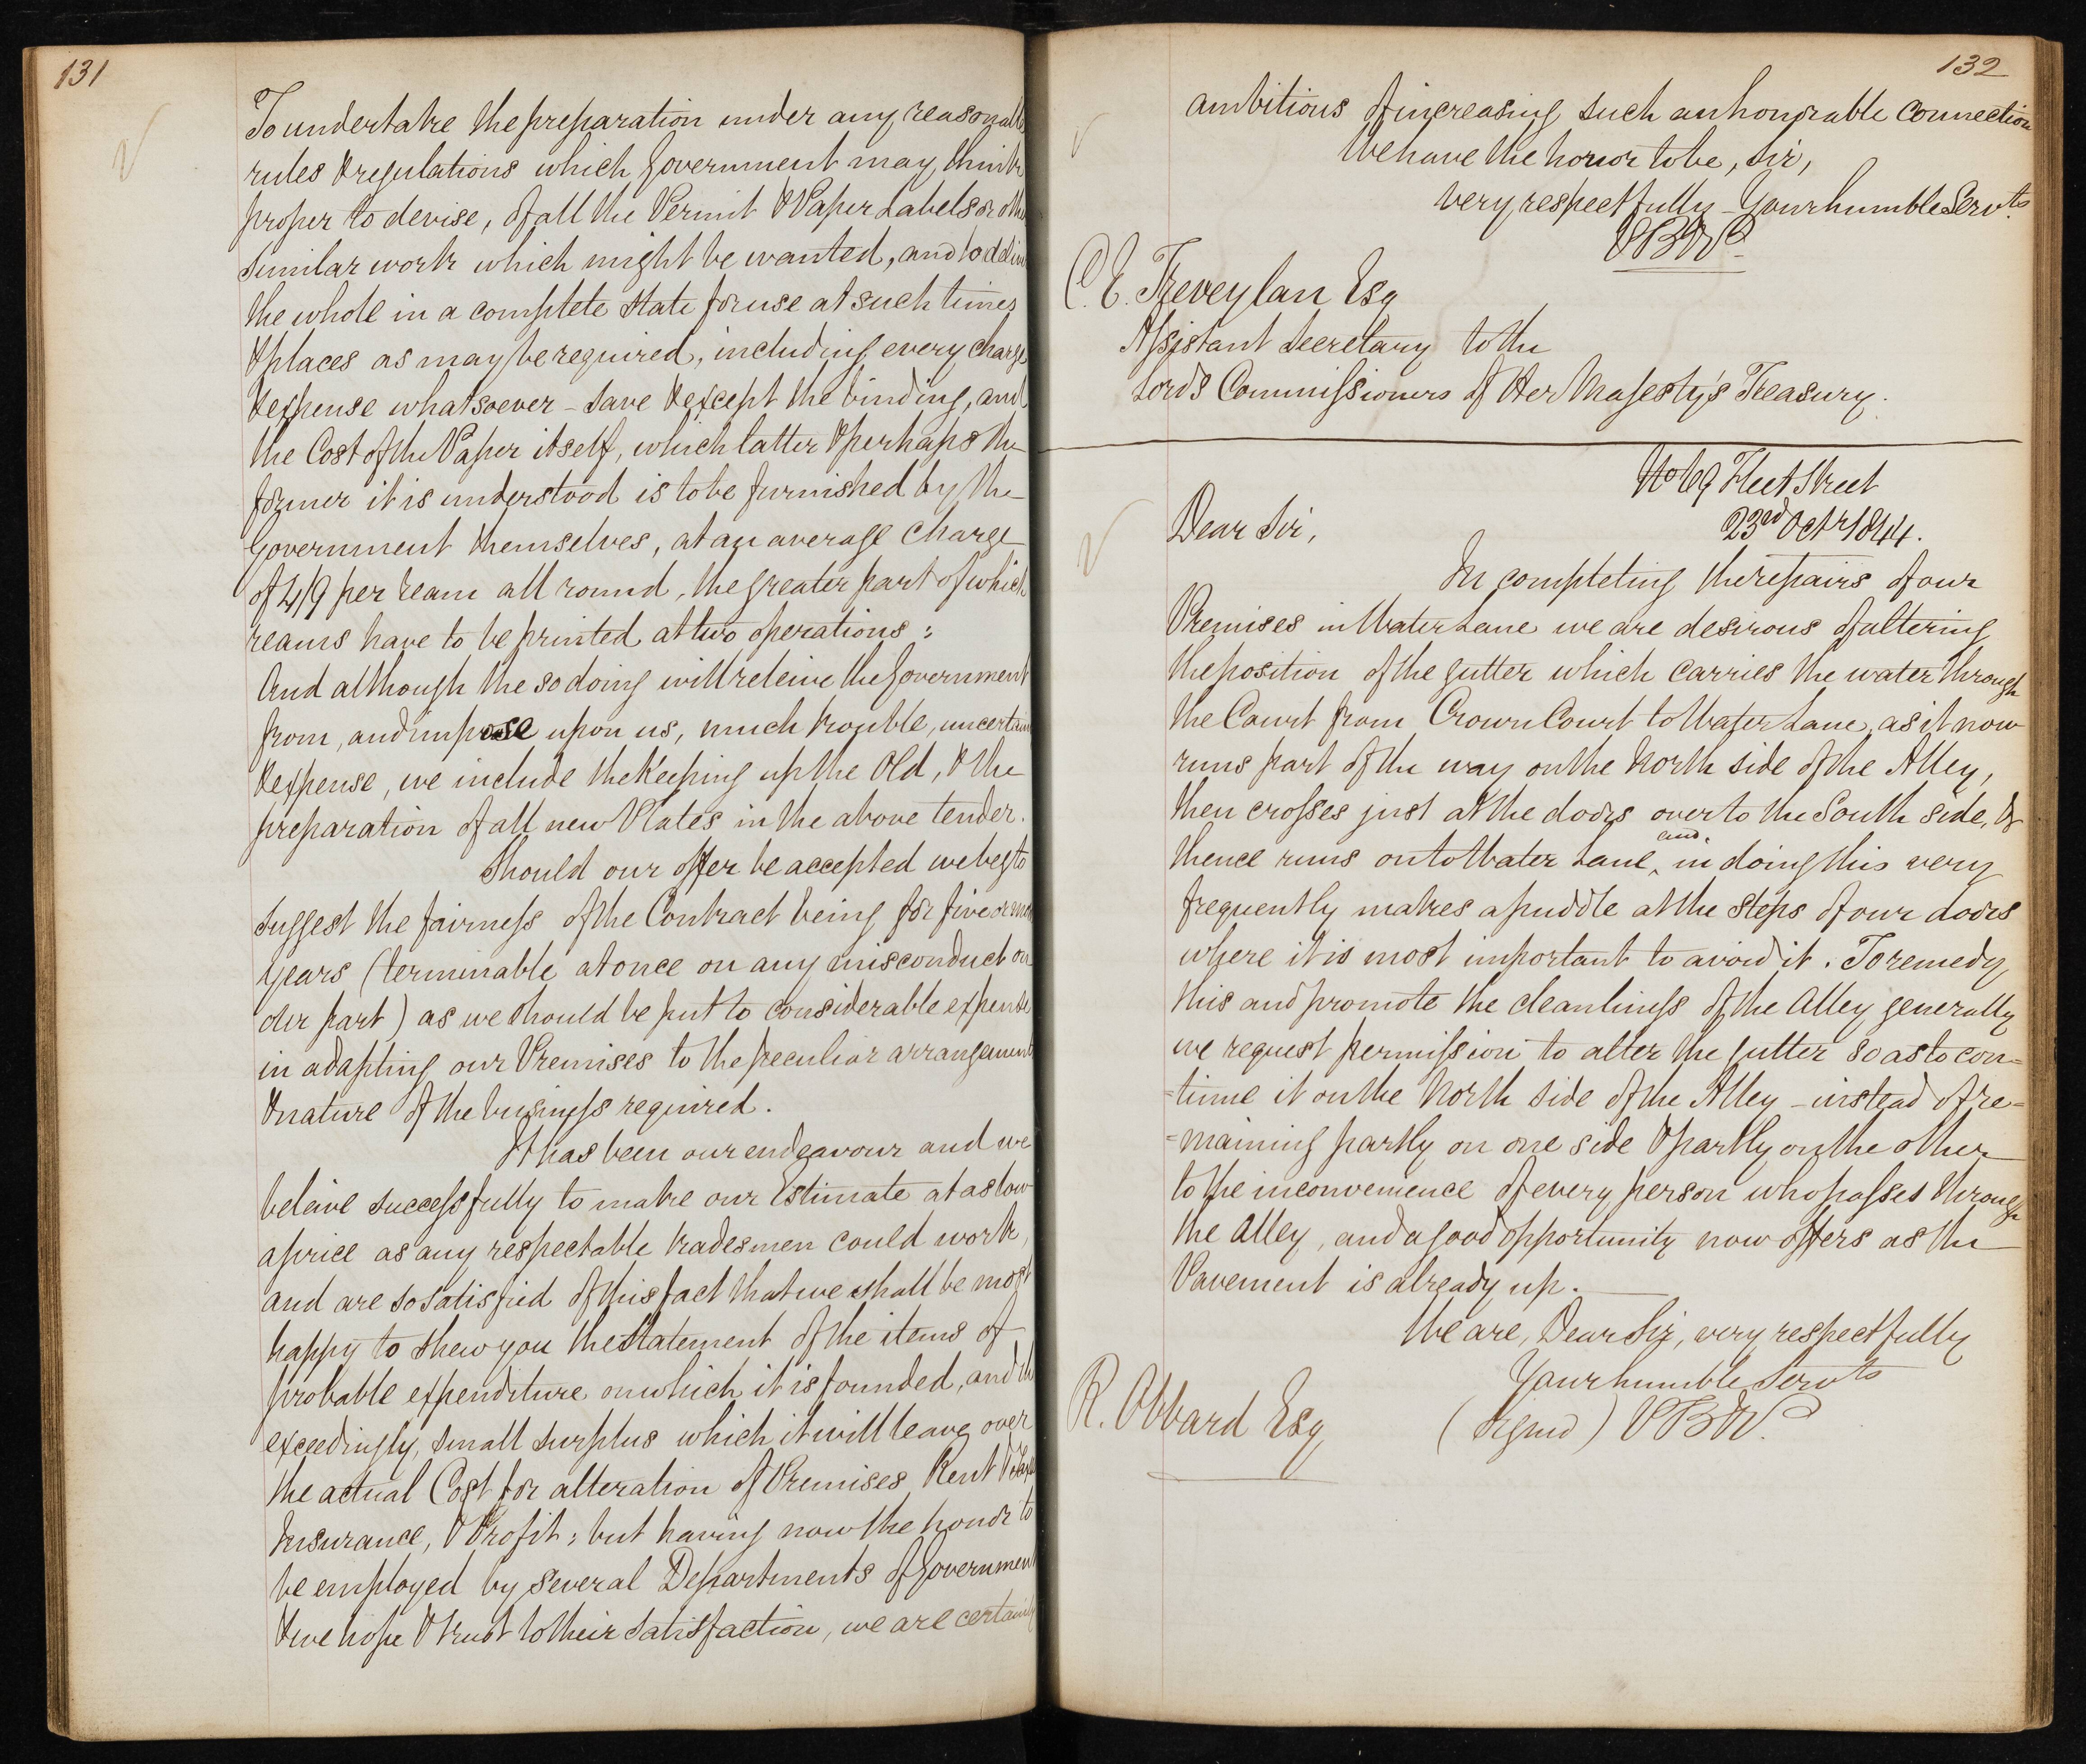 131
To undertake the preparation under any reasonable
rules & regulations which Government may think
proper to devise, of all the Permit & Paper Labels or other
similar work which might be wanted, and to deliver
the whole in a complete state for use at such times
& places as may be required, including every charge
& expense whatsoever - save & except the binding, and
the Cost of the Paper itself, which latter & perhaps the
former it is understood is to be furnished by the
Government themselves, at an average charge
of 4/9 per ream all round, the greater part of which
reams have to be printed at two operations;
And although the so doing will releive the Government
from, and impose upon us, much trouble, uncertain
& expense, we include the Keeping up the Old, & the
preparation of all new Plates in the above tender.
Should our offer be accepted we beg to
suggest the fairness of the Contract being for five or more
years (terminable at once on any misconduct on
our part) as we should be put to considerable expense
in adapting our Premises to the peculiar arrangement
& nature of the business required.
It has been our endeavour and we
beleive successfully to make our Estimate at as low
a price as any respectable tradesmen could work,
and are so satisfied of this fact that we shall be most
happy to shew you the Statement of the items of
probable expenditure on which it is founded, and the
exceedingly small surplus which it will leave over
the actual Cost for alteration of Premises, Rent & Taxes
Insurance, & Profit; but having now the honor to
be employed by several Departments of Government
& we hope & trust to their satisfaction, we are certainly
132
ambitious of increasing such an honorable connection
We have the honor to be, Sir,
very respectfully Your humble Servts.
PB&W
C. E. Treveylan Esq
Assistant Secretary to the
Lords Commissioners of Her Majesty's Treasury.
No 69 Fleet Street
23rd Octr 1844.
Dear Sir,
In completing the repairs of our
Premises in Water Lane we are desirous of altering
the position of the gutter which carries the water through
the Court from Crown Court to Water Lane, as it now
runs part of the way on the North side of the Alley,
then crosses just at the doors over to the South side, &
thence runs on to Water Lane, and in doing this very
frequently makes a puddle at the steps of our doors
where it is most important to avoid it. To remedy
this and promote the cleanliness of the Alley generally
we request permission to alter the gutter so as to con=
=tinue it on the North side of the Alley - instead of re=
=maining partly on one side & partly on the other
to the inconvenience of every person who passes through
the Alley, and a good opportunity now offers as the
Pavement is already up.
We are, Dear Sir, very respectfully
Your humble Servts
R. Obbard Esq
(Signed) PB&W.